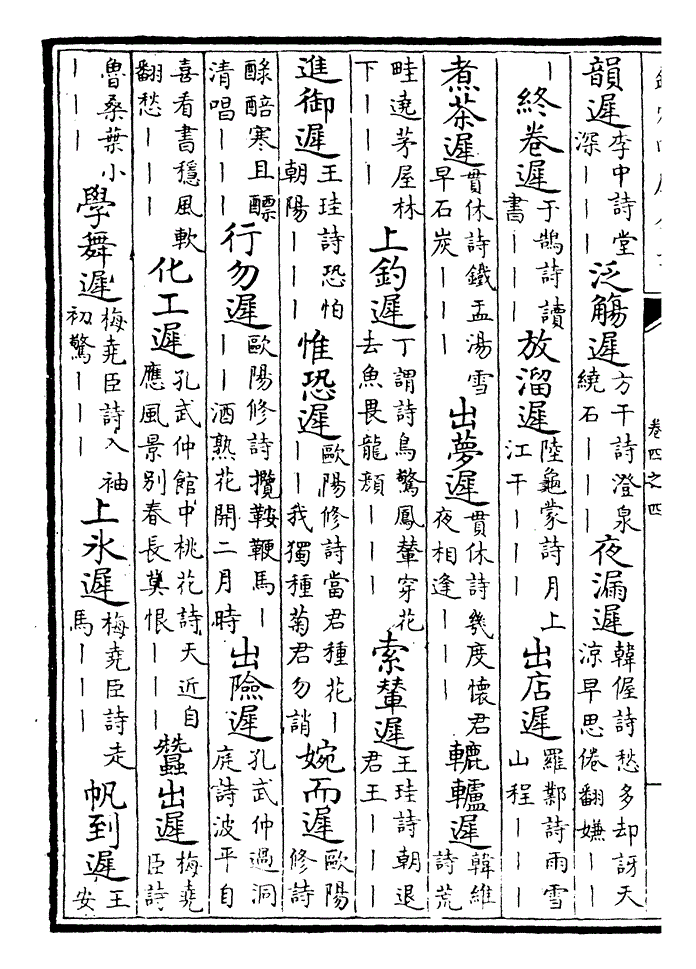 卷四之四
韻遲李中詩堂深丨丨 泛觴遲方干詩澄泉繞石丨丨丨 夜漏遲韓偓詩愁多却訝天涼早思倦翻嫌丨丨
丨 終卷遲于鵠詩讀書丨丨丨 放溜遲陸龜蒙詩月上江干丨丨丨 出店遲羅鄴詩雨雪山程丨丨丨
煮茶遲貫休詩鐵盂湯雪早石炭丨丨丨 出夢遲貫休詩幾度懷君夜相逢丨丨丨 轆轤遲韓維詩荒
畦遶茅屋林下丨丨丨 上釣遲丁謂詩鳥驚鳳輦穿花去魚畏龍顏丨丨丨 索輦遲王珪詩朝退君王丨丨丨
進御遲王珪詩恐怕朝陽丨丨丨 惟恐遲歐陽修詩當君種花丨丨丨我獨種菊君勿誚 婉而遲歐陽修詩
醁醅寒且醥清唱丨丨丨 行勿遲歐陽修詩攬鞍鞭馬丨丨丨酒熟花開二月時 出險遲孔武仲過洞庭詩波平自
喜看書穩風軟翻愁丨丨丨 化工遲孔武仲館中桃花詩天近自應風景別春長莫恨丨丨丨 蠶出遲梅堯臣詩
魯桑葉小丨丨丨 學舞遲梅堯臣詩入袖初驚丨丨丨 上氷遲梅堯臣詩走馬丨丨丨 帆到遲王安